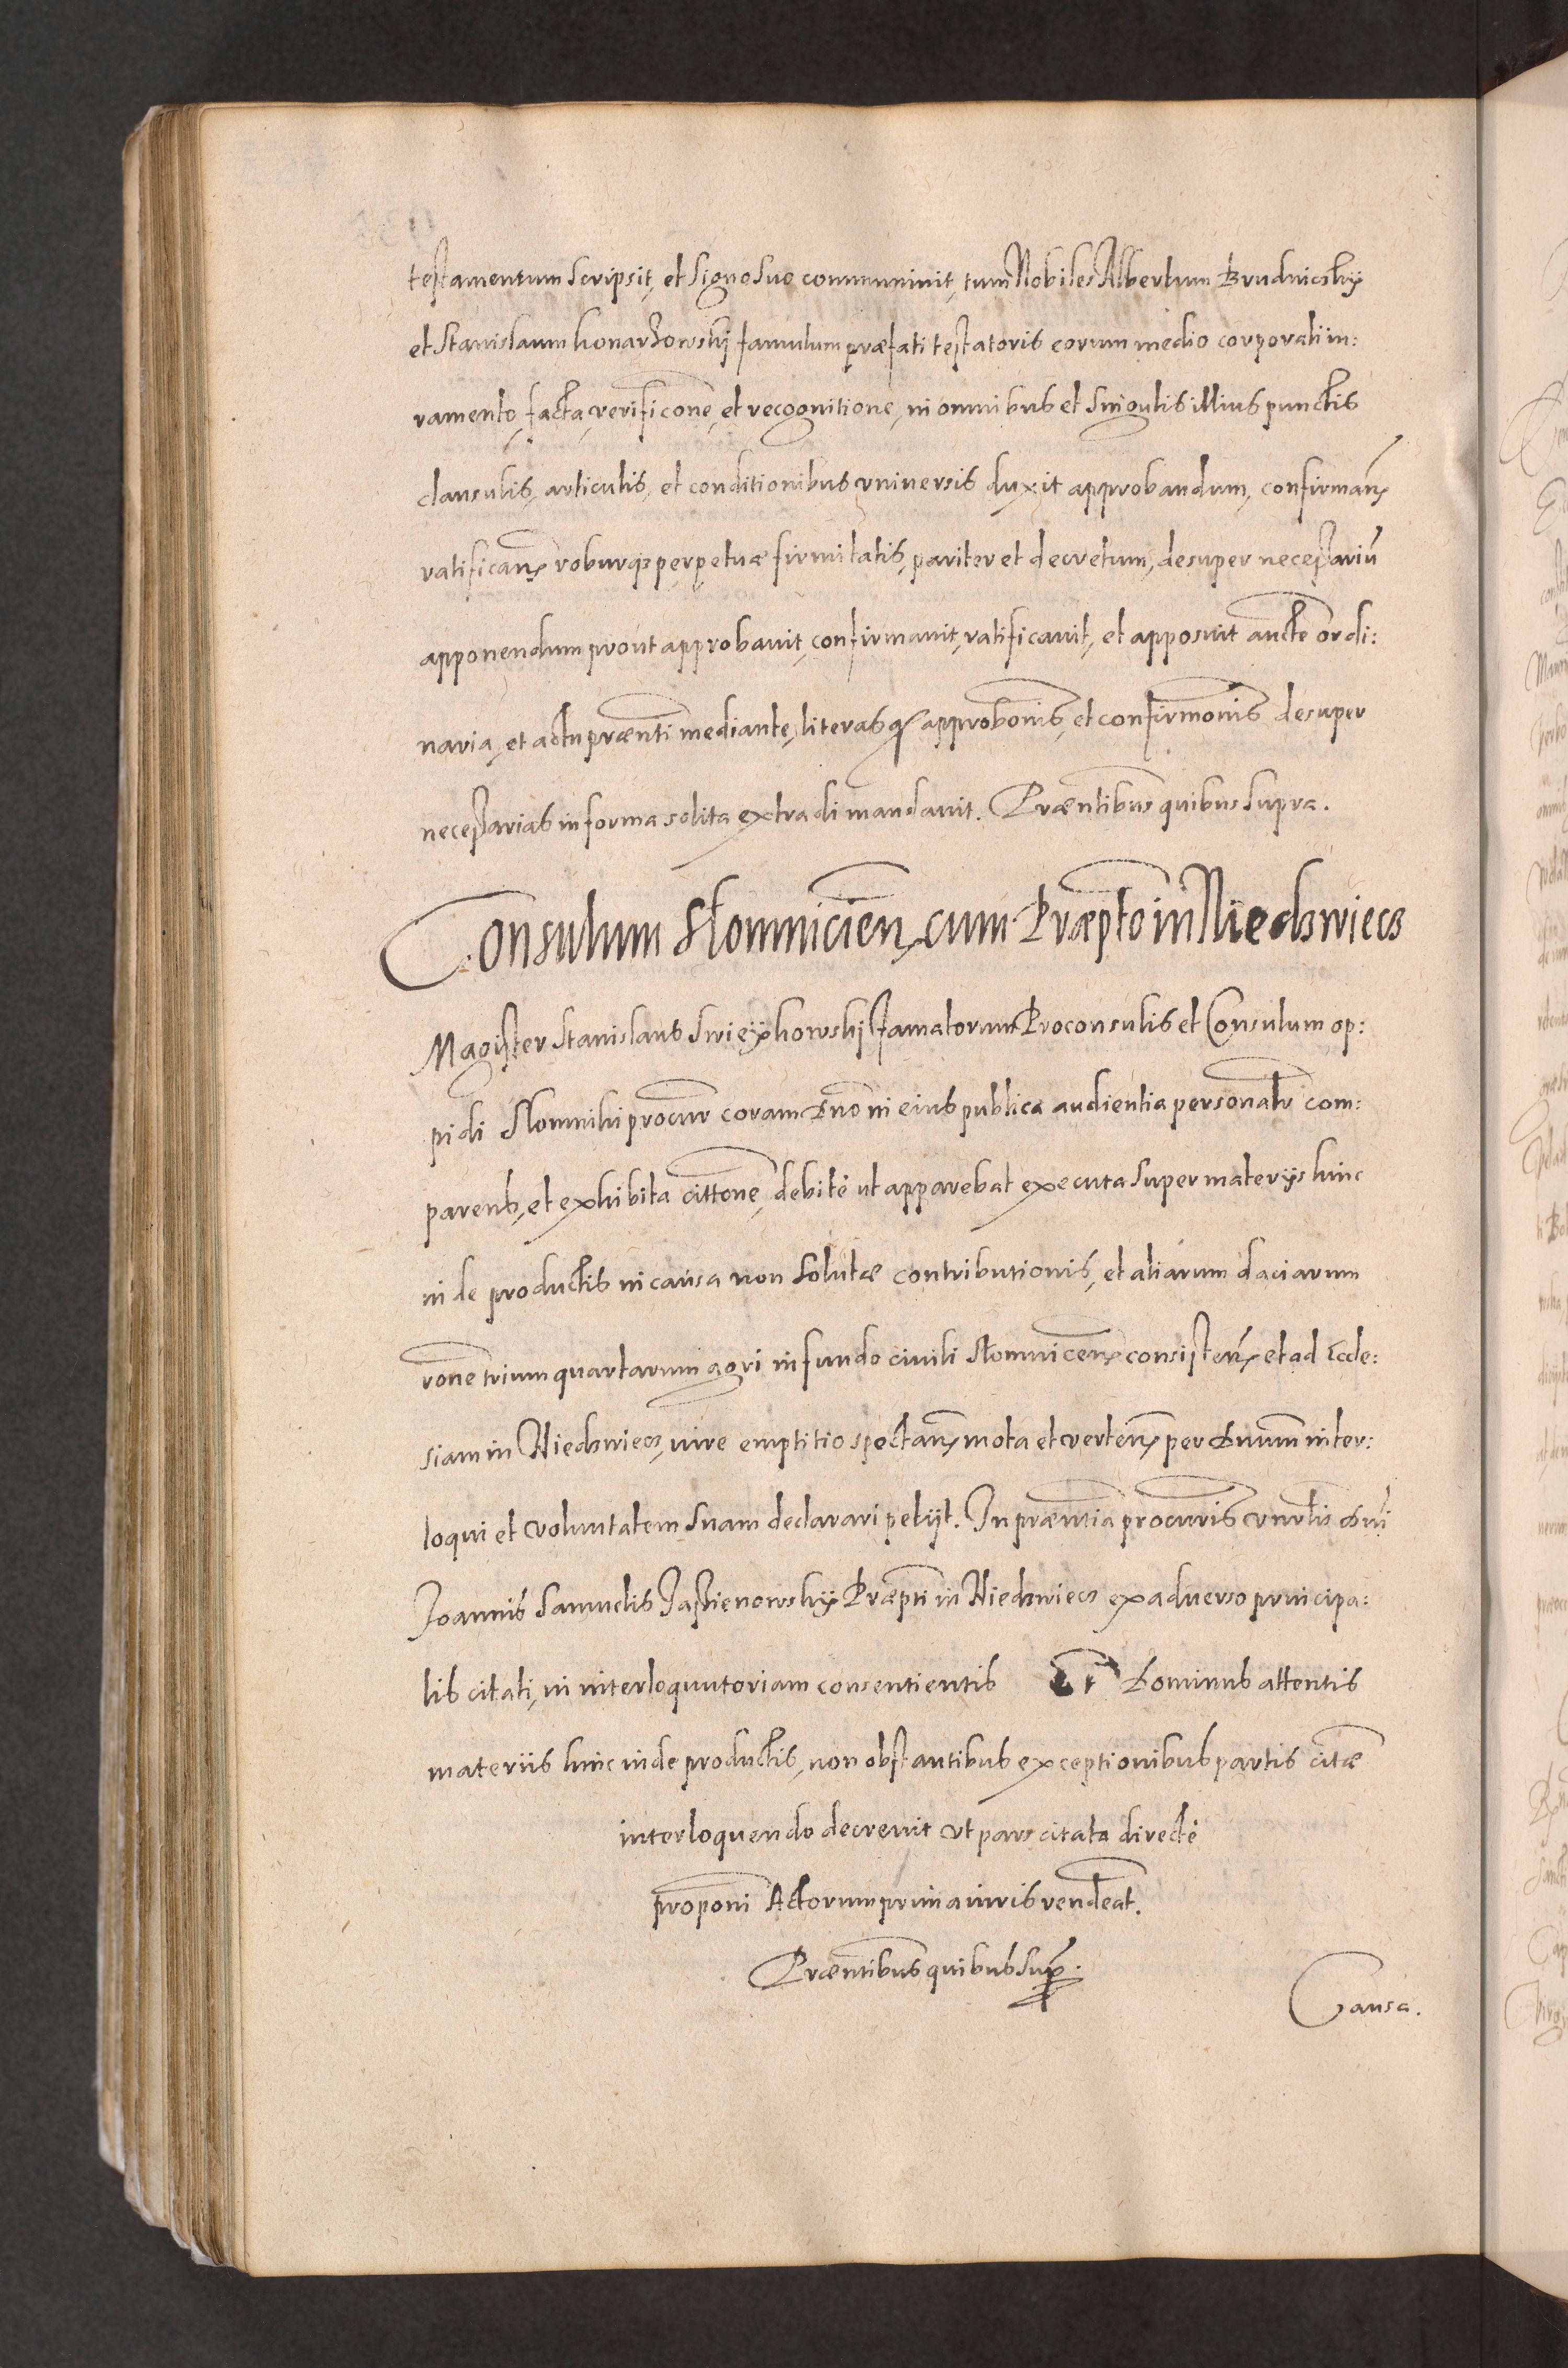 testamentum scripsit, et signo suo communinit, tum Nobiles Albertum Brudnicskÿ
et Stanislaum konarzowskÿ famulum præfati testatoris eorum medio corporali iu:
ramento, facta verificone, et recognitione, in omnibus et singulis illius punctis
clausulis, articulis, et conditionibus vniuersis duxit approbandum, confirman
ratifican roburq perpetuæ firmitatis, pariter et decretum, desuper necessariū
apponendum prout approbauit, confirmauit, ratificauit, et apposuit aucte ordi:
naria, et actu prænti mediante, literas q approbonis, et confirmonis desuper
necessarias in forma solita extradi mandauit. Præntibus quibus supra.
Consulum Słomnicien, cum Præpto in Niedzwiecz
Magister Stanislaus Swieÿxkowskÿ famatorum Proconsulis et Consulum op:
pidi Słomniki procur coram Dno in eius publica audientia personalr com:
parens, et exhibita cittone, debitè ut apparebat executa super materijs hinc
inde productis in causa non solutæ contributionis, et aliarum daciarum
rone trium quartarum agri in fundo ciuili Słomnicen consisten et ad Eccle:
siam in Niedzwiecz, iure emptitio spectan mota et verten per Dnum inter:
loqui et voluntatem suam declarari petijt. In præntia procuris Vnrlis Dni
Joannis Samuelis Jassienowskÿ Præpti in Niedzwiecz ex aduerso principa:
lis citati, in interloquutoriam consentientis Et Dominus attentis
materiis hinc inde productis, non obstantibus exceptionibus partis citæ
interloquendo decreuit vt pars citata directè
proponi Actorum prima iuris rendeat.
Præntibus quibus sup.
Causa.